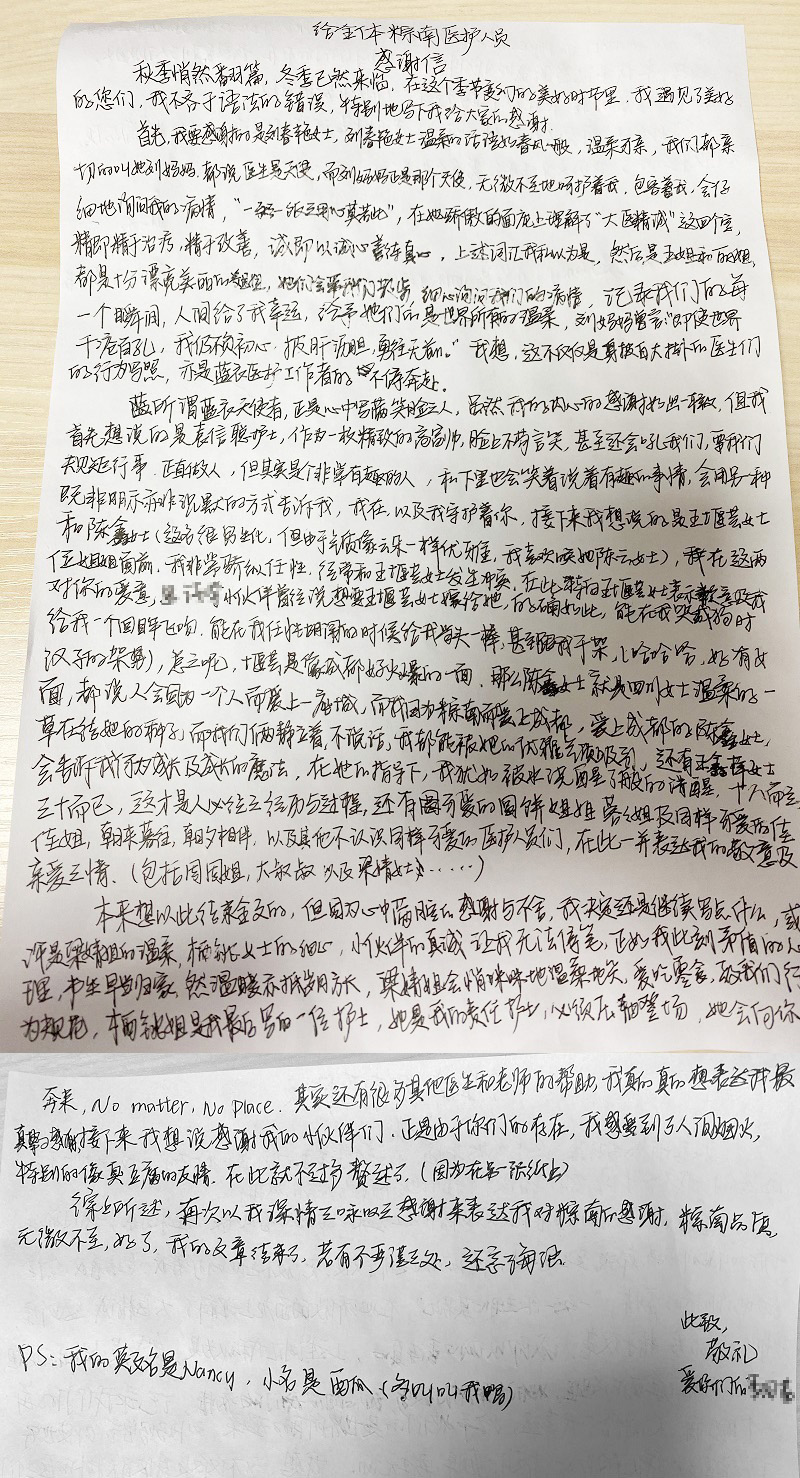 给全体棕南医护人员
感谢信
秋季悄然翻篇，冬季已然来临，在这个季节更迭的美好时节里，我遇见了美好
的您们，我不吝于语法的错误，特别地写下我给大家的感谢.
首先，我要感谢的是刘春艳女士，刘春艳女士温柔的话语如春风一般，温柔可亲，我们都亲
切的叫她刘妈妈.都说医生是天使，而刘妈妈正是那个天使，无微不至地呵护着我，包容着我，会仔
细地询问我的病情，在她骄傲的面庞上理解了"大医精诚"这四个字，
精即精于治疗，精于改善，诚即以诚心善待真心，上述词汇我私以为是，然后是和姐姐，
都是十分漂亮美丽的姐姐，她们会细心询问我们的病情，记录我们的每
一个瞬间，人间给了我幸运，给予她们的是世界所有的温柔，刘妈妈曾言"即使世界
千疮百孔，我仍不换初心.披肝沥胆，勇往无前。"我想，这不仅仅是身披白大褂的医生们
的行为写照，亦是蓝衣医护工作者的不停奔赴。
蓝所谓蓝衣天使者，正是心中写满笑脸之人，虽然我的内心的感谢如出一辙，但我
首先想说的是袁信聪护士，作为一枚精致的高富帅，脸上不苟言笑，甚至还会吼我们，要我们
规矩行事.正直做人，但其实是个非常有趣的人，私下里也会笑着说着有趣的事情，会用另一种
既非明示亦非沉默的方式告诉我，我在，以及我守护着你，接下来我想说的是王女士
和陈鑫女士（这名很男生化，但由于气质像云朵一样优雅，我喜欢唤她陈云女士），我在这两
位姐姐面前，我非常骄纵任性，经常和王女士发生冲突，在此特向王女士表示
对你的爱意，小伙伴曾经说想要王女士嫁给她，的确如此，能在我哭
给我一个回眸飞吻.能在我任性胡闹的时候给我当头一棒，甚至跟我干架，（哈哈哈，好有女
汉子的架势），怎么呢，是像成都火爆的一面.那么陈鑫女士就是四川女士温柔的一
面，都说人会因为一个人而爱上一座城，而我因为棕南而爱上成都，爱上成都的陈鑫女士，
草在结她的种子，而我们俩静立着，不说话，我都能被她的优雅吸引，还有女士
会告诉我何为成长及成长的魔法，在她的指导下，我犹如被水洗面了般的清醒，
三十而已，这才是人必经之经历与过程，还有圆可爱的圆饼姐姐姐及同样可爱的佳
佳姐，朝来暮往，朝夕相伴，以及其他不认识同样可爱的医护人员们，在此一并表达我的敬意及
亲爱之情.（包括同同姐，大叔叔以及梁婧女士……）
本来想以此结束全文的，但因为心中满腔的感谢与不舍，我决定还是继续写点什么，或
许是梁婧姐的温柔，女士的细心，小伙伴的真诚让我无法停笔，正如我此刻
然温暖亦抵岁月方长，梁婧姐会悄咪咪地温柔地笑，爱吃零食，教我们行
为规范，姐是我最后写的一位护士，她是我的责任护士，必须压轴登场，她会向你
奔来，No matter，No place.其实还有很多其他医生和老师的帮助，我真的真的想表达我最
真挚的感谢，接下来我想说感谢我的小伙伴们，正是由于你们的存在，我感受到了人间烟火，
特别的像臭豆腐的友情.在此就不过多赘述了.（因为在另一张纸上）
综上所述，再次以我深情之感谢来表达我对棕南的感谢，棕南
无微不至，好了，我的文章结束了，若有不严谨之处，还望海涵.
此致，
敬礼
爱你们的
PS：我的英文名是Nancy，小名是西瓜（多叫叫我呗）